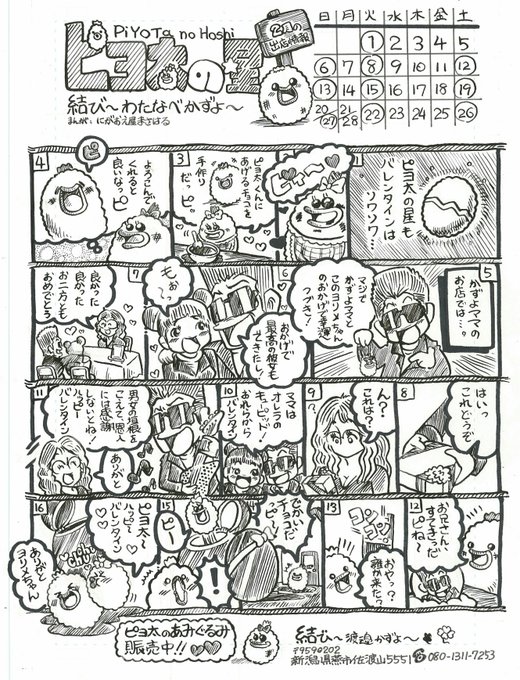 PiYOTA no Hoshi
ピヨ太の星
2月の
出店情報
結び～わたなべかずよ～
まんが：にがおえ屋まさはる
日 月 火 水 木 金 土
1 2 3 4 5
6 7 8 9 10 11 12
13 14 15 16 17 18 19
20 21 22 23 24 25 26
27 28
1
ピヨ太の星も
バレンタインは
ソワソワ…
ピヤ～
3
ピヨ太くんに
あげるチョコを
手作り
だっピ。
4
ピ
よろこんで
くれると
良いなっピ
5
かずよママの
お店では…。
マジで
かずよママと
このヨリスちゃん
のおかげで幸運
6
おかげで
最高の彼女も
できたし！
もぉ～
7
良かった
お二方とも
おめでとう
8
はい。
これどうぞ
9
ん？
これは？
10
ママは
オレラの
キューピッド！
おれらから
バレンタイン
11
男女の垣根を
こえて恩人
には感謝
しないとね！
ハッピー
バレンタイン
ありがと
12
お兄さん、
すてきだっ
ピね～
13
コンコン
おやっ？
誰か来た？
でかいチョコだ
ピ～！
15
ピー
！
16
ピヨ太～
ハッピー
バレンタイン
ありがと
ヨリスちゃん
ピヨ太のあみぐるみ
販売中！！
結び～渡邉かずよ～
〒9590202
新潟県燕市佐渡山5551 ☎080-1311-7253